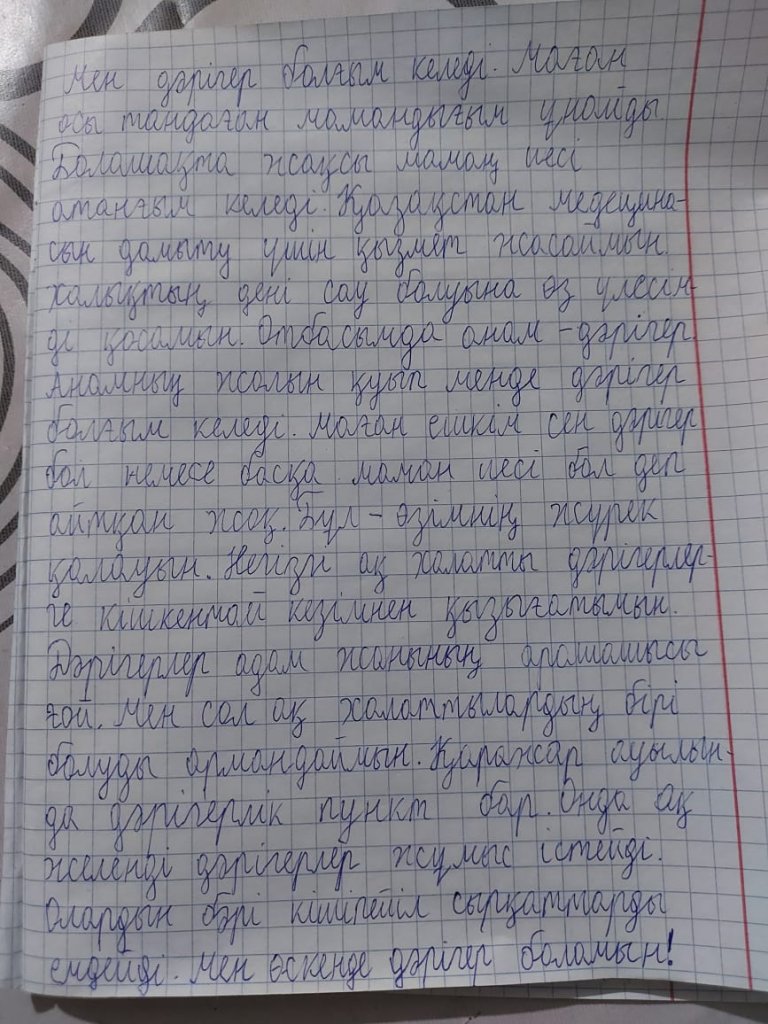 Мен дәрігер болғым келеді. Маған
осы таңдаған мамандығым ұнайды
Болашақта жақсы маман иесі
атанғым келеді. Қазақстан медецина-
сын дамыту үшін қызмет жасаймын.
халықтың дені сау болуына өз үлесін-
ді қосамын. Отбасымда анам - дәрігер
Анамның жолын қуып менде дәрігер
болғым келеді. Маған ешкім сен дәрігер
бол немесе басқа маман иесі бол деп
айтқан жоқ. Бұл - өзімнің жүрек
қалауым. Негізі ақ халатты дәрігерлер-
ге кішкентай кезімнен қызығатымын.
Дәрігерлер адам жанының арашашысы
ғой. Мен сол ақ халаттылардың бірі
болуды армандаймын. Қаражар ауылын-
да дәрігерлік пункт бар. Онда ақ
желеңді дәрігерлер жұмыс істейді.
Олардын бәрі кішіпейіл сырқаттарды
емдейді. Мен өскенде дәрігер боламын!